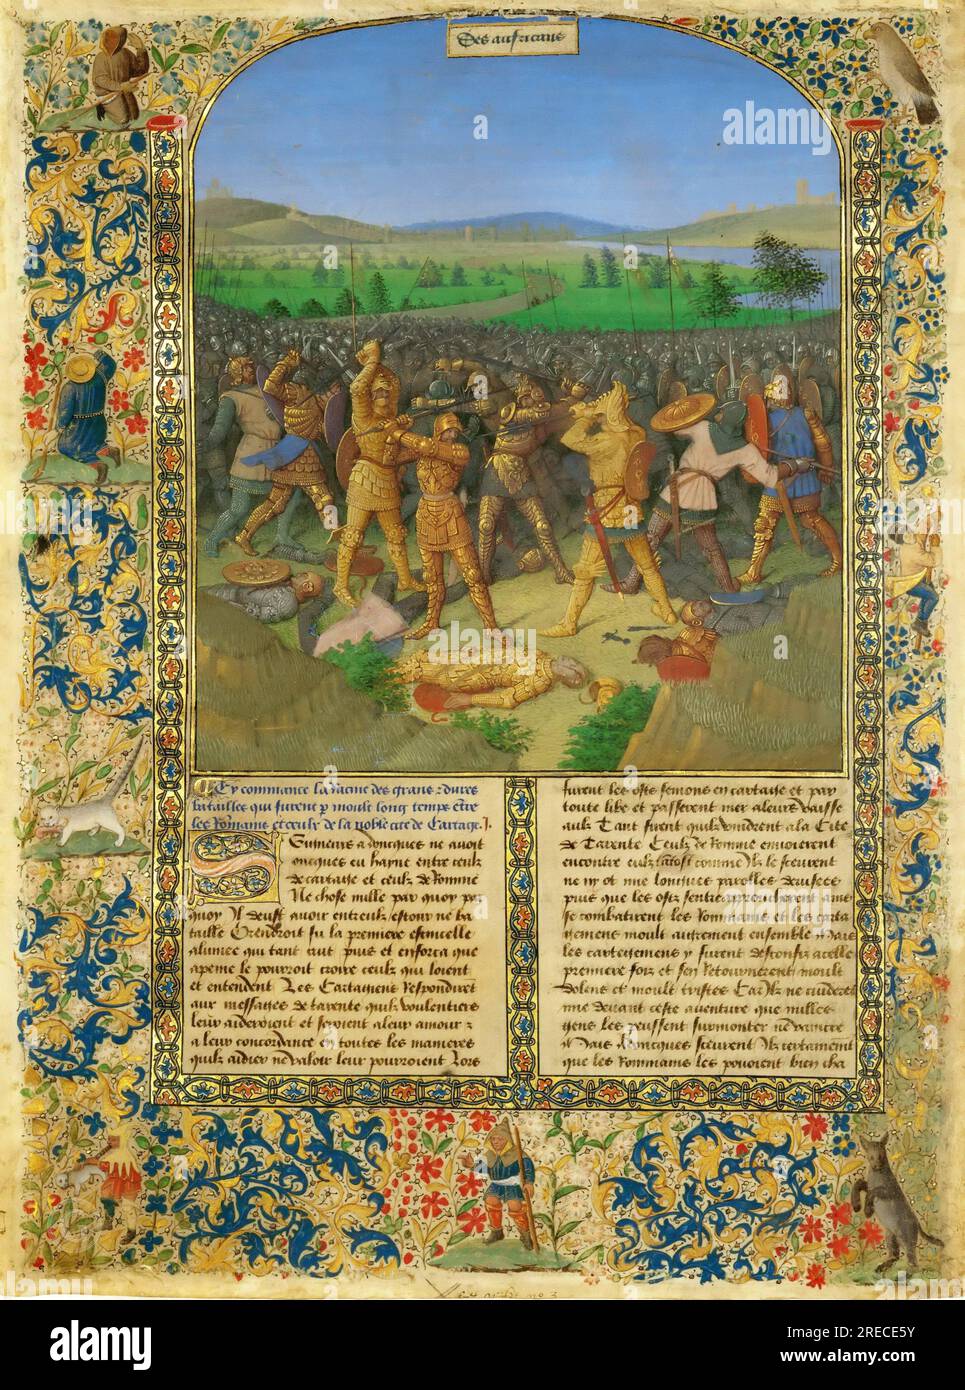 Des aufricans
Cy commance la Racine des grans et dures
batailles qui furent p moult long temps entre
les Romains et ceulx de la noble cite de Cartage J.
Suineurs adoncques ne auoit
oncques eu hayne entre ceulx
de cartaige et ceulx de Romme
Ne chose nulle par quoy par
quoy Il deust auoir entreulx estour ne ba
taille Orendroit fu la premiere estincelle
alumee qui tant crut puis et enforca que
apeine le pourroit croire ceulx qui loient
et entendent Les Cartagiens Respondirent
aux messages de tarente quilz voulentiers
leur aideroient et seroient a leur amour
a leur concordance en toutes les manieres
quilz aidier ne valoir leur pourroient Lors
furent les ostz semons en cartaige et par
toute libe et passerent mer a leurs vaisse
aulx Tant firent quilz vindrent a la Cite
de Tarente Ceulx de Romme enuoierent
encontre eulx tantost comme Ilz le sceurent
ne ny ot mie longues parolles deuisees
puis que les ostz sentreapproucherent ains
se combatirent les Rommains et les carta
giemens moult aigrement ensemble Mais
les cartagiemens y furent desconfiz a celle
premiere foiz et sen Retournerent moult
dolens et moult tristes Car Ilz ne cuideret
mie deuant ceste auenture que nulles
gens les peussent surmonter ne vaincre
Mais adoncques sceurent Ilz certainement
que les Rommains les pouoient bien cha
alamy
Image ID: 2RECE5Y
www.alamy.com